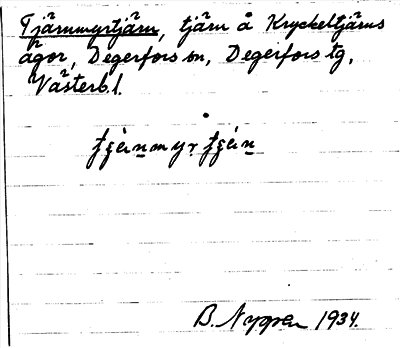 Tjärnmyrtjärn, tjärn å Kryckeltjärns
ägor, Degerfors sn, Degerfors tg,
Västerb l.
B. Nygren 1934.